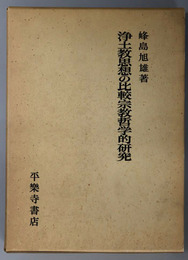 峰島旭雄著
浄土教思想の比較宗教哲学的研究
平樂寺書店